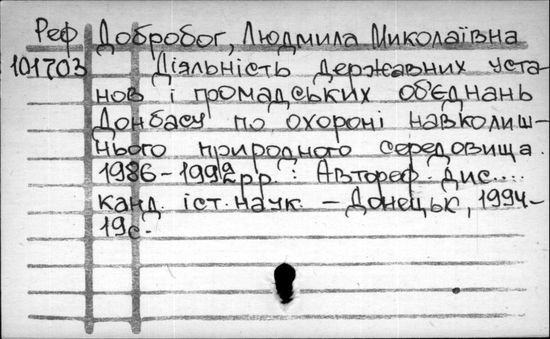 Реф Добробог, Людмила Миколаївна
101703 Діяльність державних уста-
нов і громадських об'єднань
Донбасу по охороні навколиш-
нього природного середовища.
1986-1992 р.р.: Автореф. дис....
канд. іст. наук. - Донецьк, 1994-
19с.